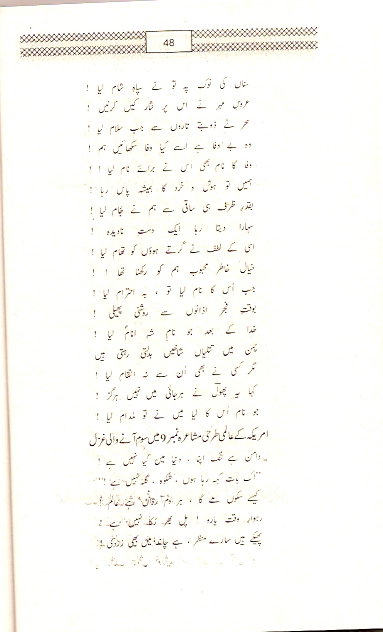 48
سناں کی نوک پہ تو نے سپاہِ شام لیا !
عروسِ مہر نے اس پر نثار کیں کرنیں !
سحر نے ڈوبتے تاروں سے جب سلام لیا !
وہ بے وفا ہے اسے کیا وفا سکھائیں ہم !
وفا کا نام بھی اس نے برائے نام لیا !
ہمیں تو ہوش و خرد کا ہمیشہ پاس رہا !
بقدرِ ظرف ہی ساقی سے ہم نے جام لیا !
سہارا دیتا رہا ایک دستِ نادیدہ !
اسی کے لطف نے گرتے ہوؤں کو تھام لیا !
خیالِ خاطرِ محبوب ہم کو رکھنا تھا !
جب اُس کا نام لیا تو ، بہ احترام لیا !
بوقتِ فجر اذانوں سے روشنی پھیلی !
خدا کے بعد جو نامِ شہِ انام لیا !
چمن میں تتلیاں شاخیں بدلتی رہتی ہیں
مگر کسی نے بھی اُن سے نہ انتقام لیا !
کہا یہ پھول نے ہرجائی میں نہیں ہرگز !
جو نام اُس کا لیا میں نے تو مدام لیا !
امریکہ کے عالمی طرحی مشاعرہ نمبر 9 میں سوم آنے والی غزل
دامن ہے تنگ اپنا ، دنیا میں کیا نہیں ہے !
اک بات کہہ رہا ہوں ، شکوہ ، گلہ نہیں ہے !
کیسے سکوں ملے گا ، ہر
رہوارِ وقت یارو ! پل بھر رکا نہیں ہے !
پھیکے ہیں سارے منظر ، ہے چاند میں بھی